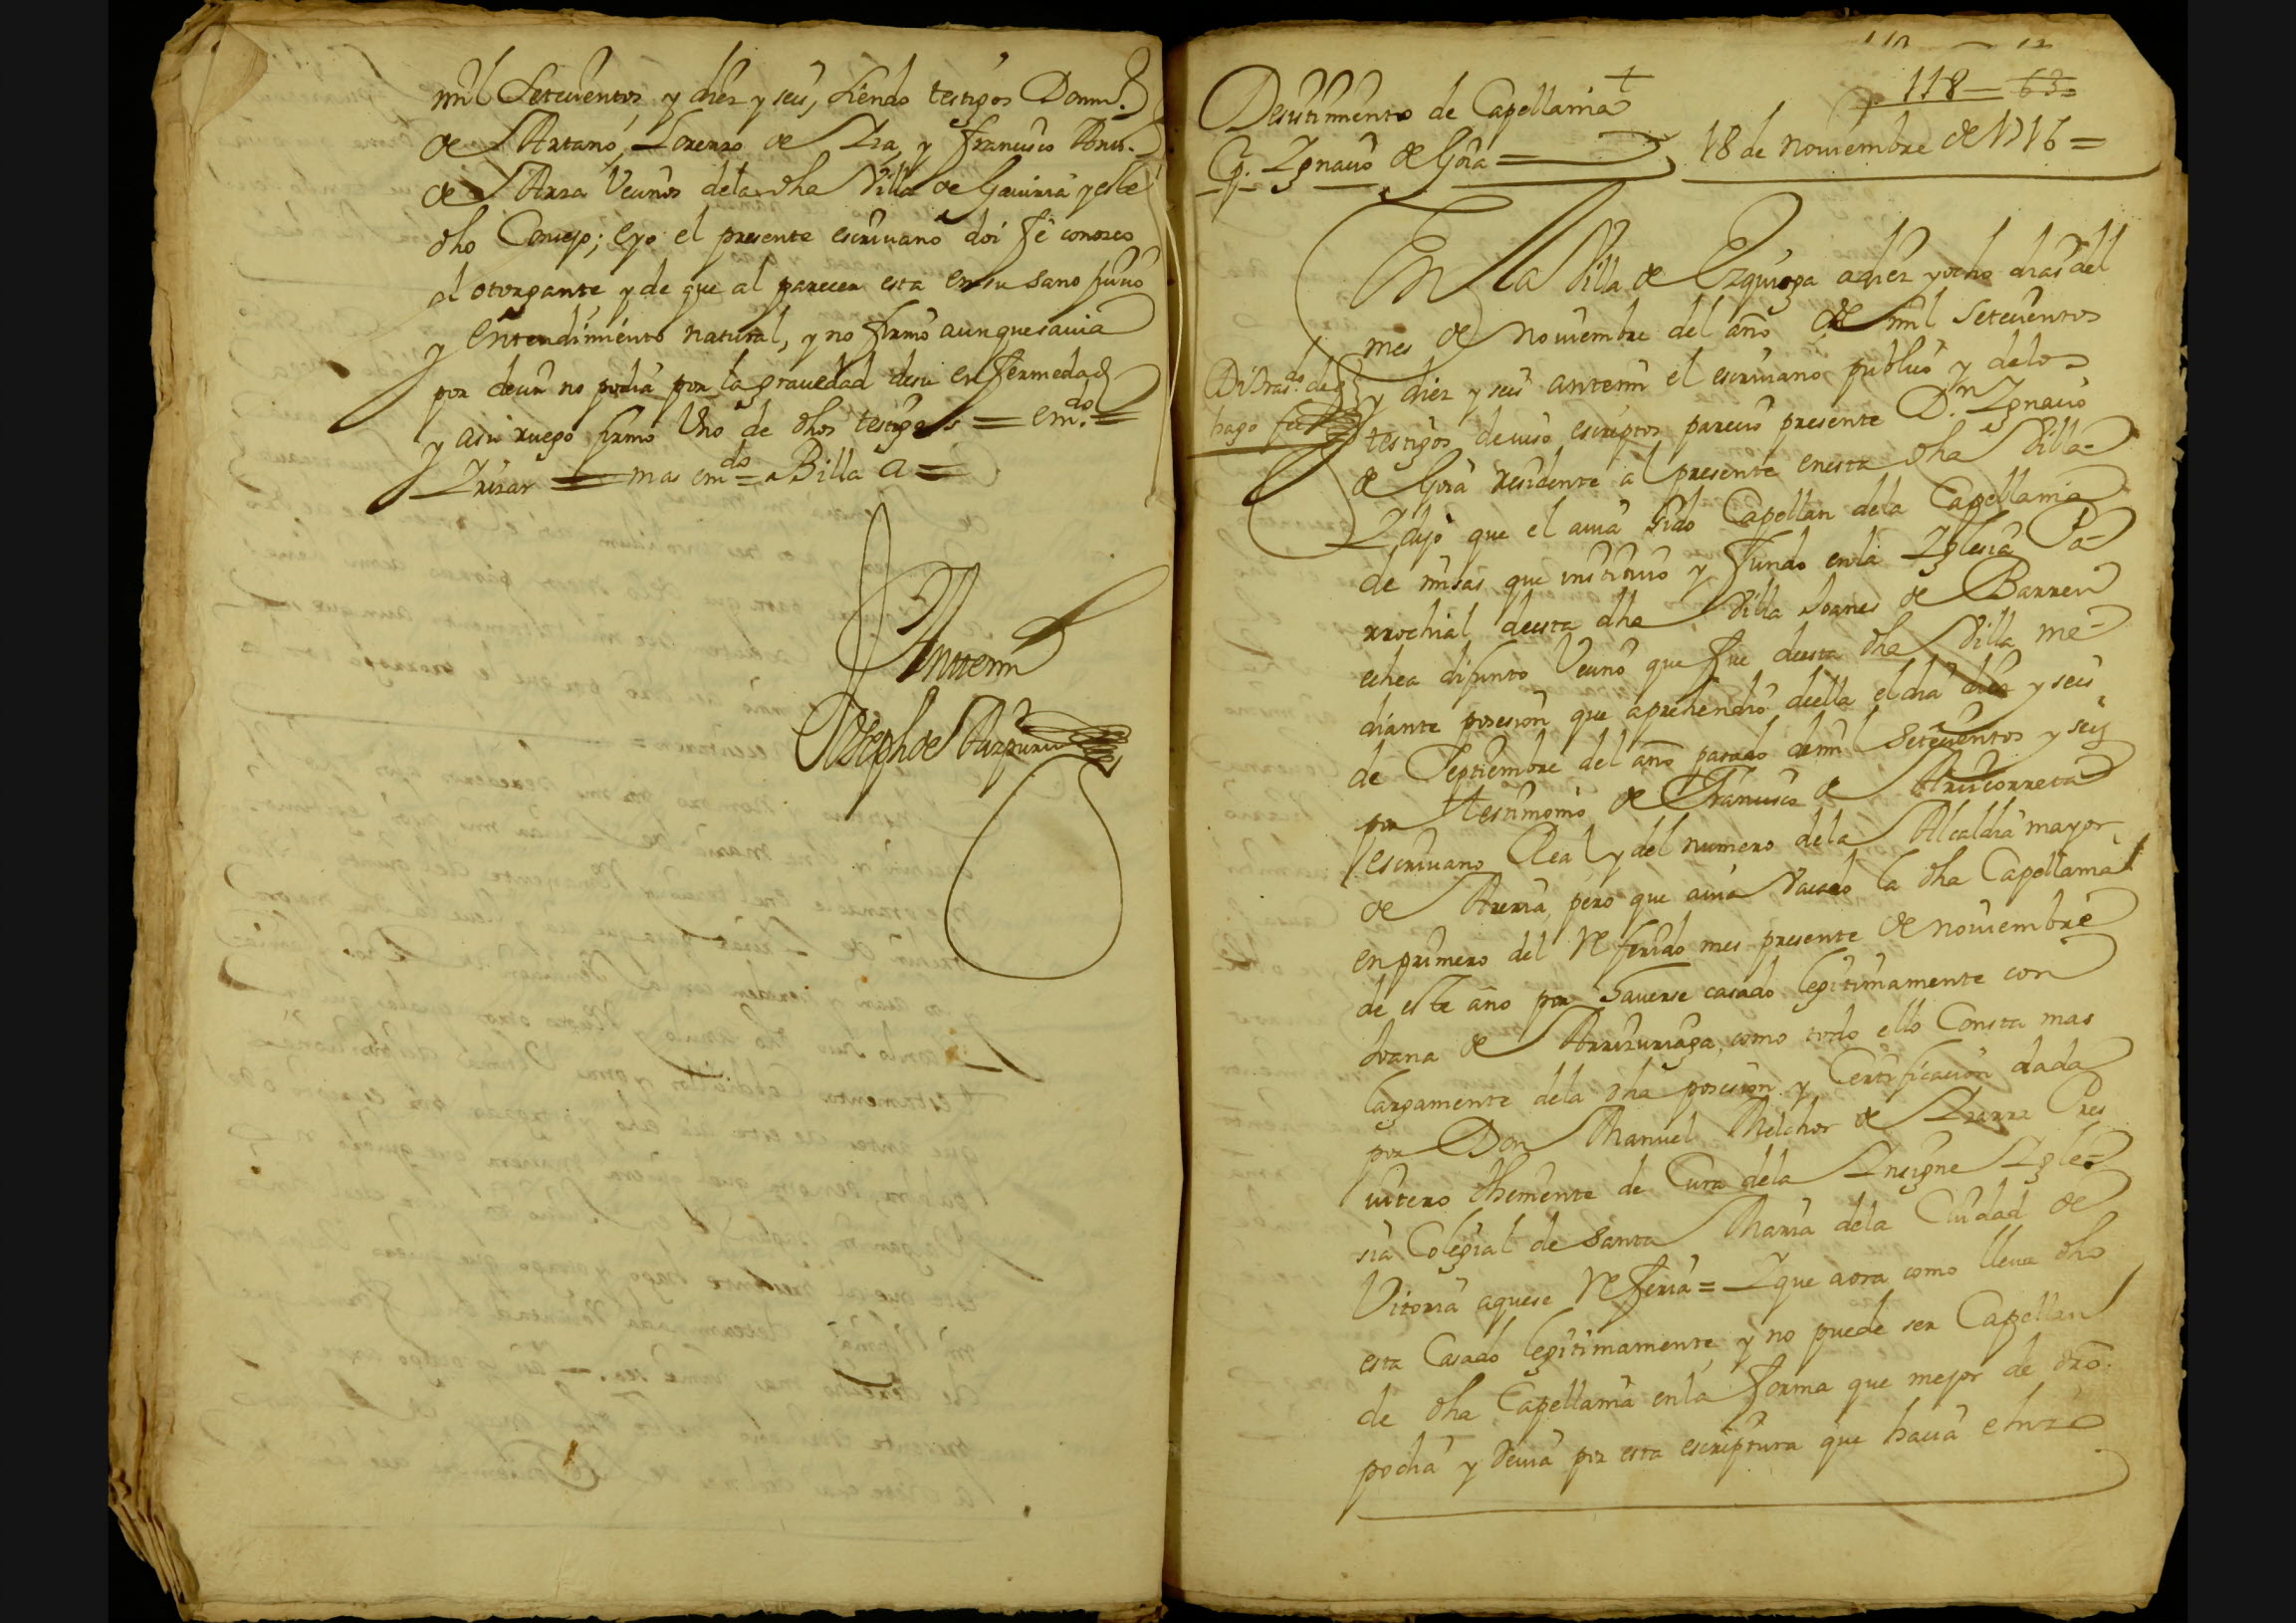 mil Setecientos, y diez y seis, siendo testigos Domin.º
de Artano, Lorenzo de Lra, y francisco Anto.
de Arza Vecinos dela dha Villa de Gaviria y este
dho Concejo; e yo el presente escrivano doi fe conozco
al otorgante y de que al parecer esta en su sano juicio
y entendimiento natural, y no firmo aunque savia
por decir no podia por la gravedad de su enfermedad
y asu ruego firmo Uno de dhos testigos = em.do =
Irizar = mas em.do = Billa a =
Antemi
Joseph de Aizpuru
118 — 63
Desistimiento de Capellania
Ig.º Ignacio de Gora =
18 de noviembre de 1716 =
En la Villa de Ezquioga a diez y ocho dias del
mes de noviembre del año de mil setecientos
y diez y seis antemi el escrivano publico y delos
Di tras.do de q
hago fee
testigos de iuso escriptos parecio presente D.n Ignacio
de Gora residente al presente enesta dha Villa
I dijo que el avia sido Capellan dela Capellania
de misas que instituio y fundo enla Iglesia Pa-
rrochial de esta dha Villa Joanes de Barren
echea difunto Vecino que fue de esta dha Villa me-
diante posesion que aprehendio de ella el dia diez y seis
de Septiembre del año pasado de mil setecientos y seis
por testimonio de Francisco de Aruicorreta
escrivano Real y del numero dela Alcaldia mayor
de Areria, pero que avia Vacado la dha Capellania
en primero del referido mes presente de noviembre
de este año por haverse casado legitimamente con
Joana de Arrizuriaga, como todo ello Consta mas
largamente dela dha posesion y Certificacion dada
por Don Manuel Melchor de Lzarra Pres
vitero theniente de Cura dela Insigne Igle-
sia Colegial de Santa Maria dela Ciudad de
Vitoria aquese refiria = I que aora como lleva dho
esta Casado legitimamente, y no puede ser Capellan
de dha Capellania enla forma que mejor de dro.
podia y devia por esta escriptura que hacia e hizo